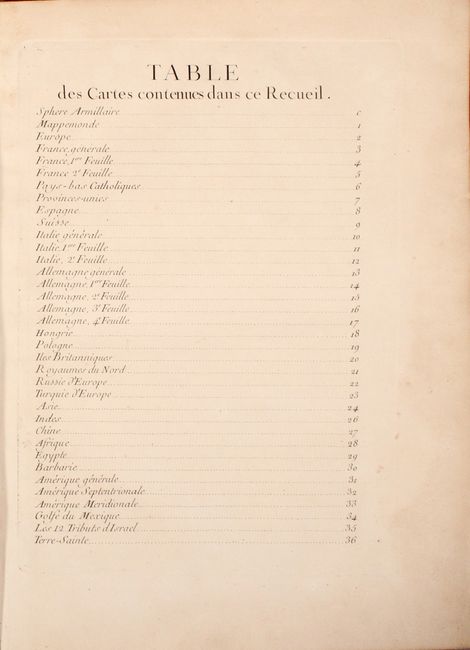 TABLE
des Cartes contenues dans ce Recueil.
Sphere Armillaire c
Mappemonde 1
Europe 2
France, générale 3
France, 1ere Feuille 4
France 2e Feuille 5
Pays-bas Catholiques 6
Provinces-unies 7
Espagne 8
Suisse 9
Italie, générale 10
Italie, 1ere Feuille 11
Italie, 2e Feuille 12
Allemagne, générale 13
Allemagne, 1ere Feuille 14
Allemagne, 2e Feuille 15
Allemagne, 3e Feuille 16
Allemagne, 4e Feuille 17
Hongrie 18
Pologne 19
Iles Britanniques 20
Royaumes du Nord 21
Russie d'Europe 22
Turquie d'Europe 23
Asie 24
Indes 26
Chine 27
Afrique 28
Egypte 29
Barbarie 30
Amérique, générale 31
Amérique Septentrionale 32
Amérique Meridionale 33
Golfe du Mexique 34
Les 12 Tributs d'Israel 35
Terre-Sainte 36